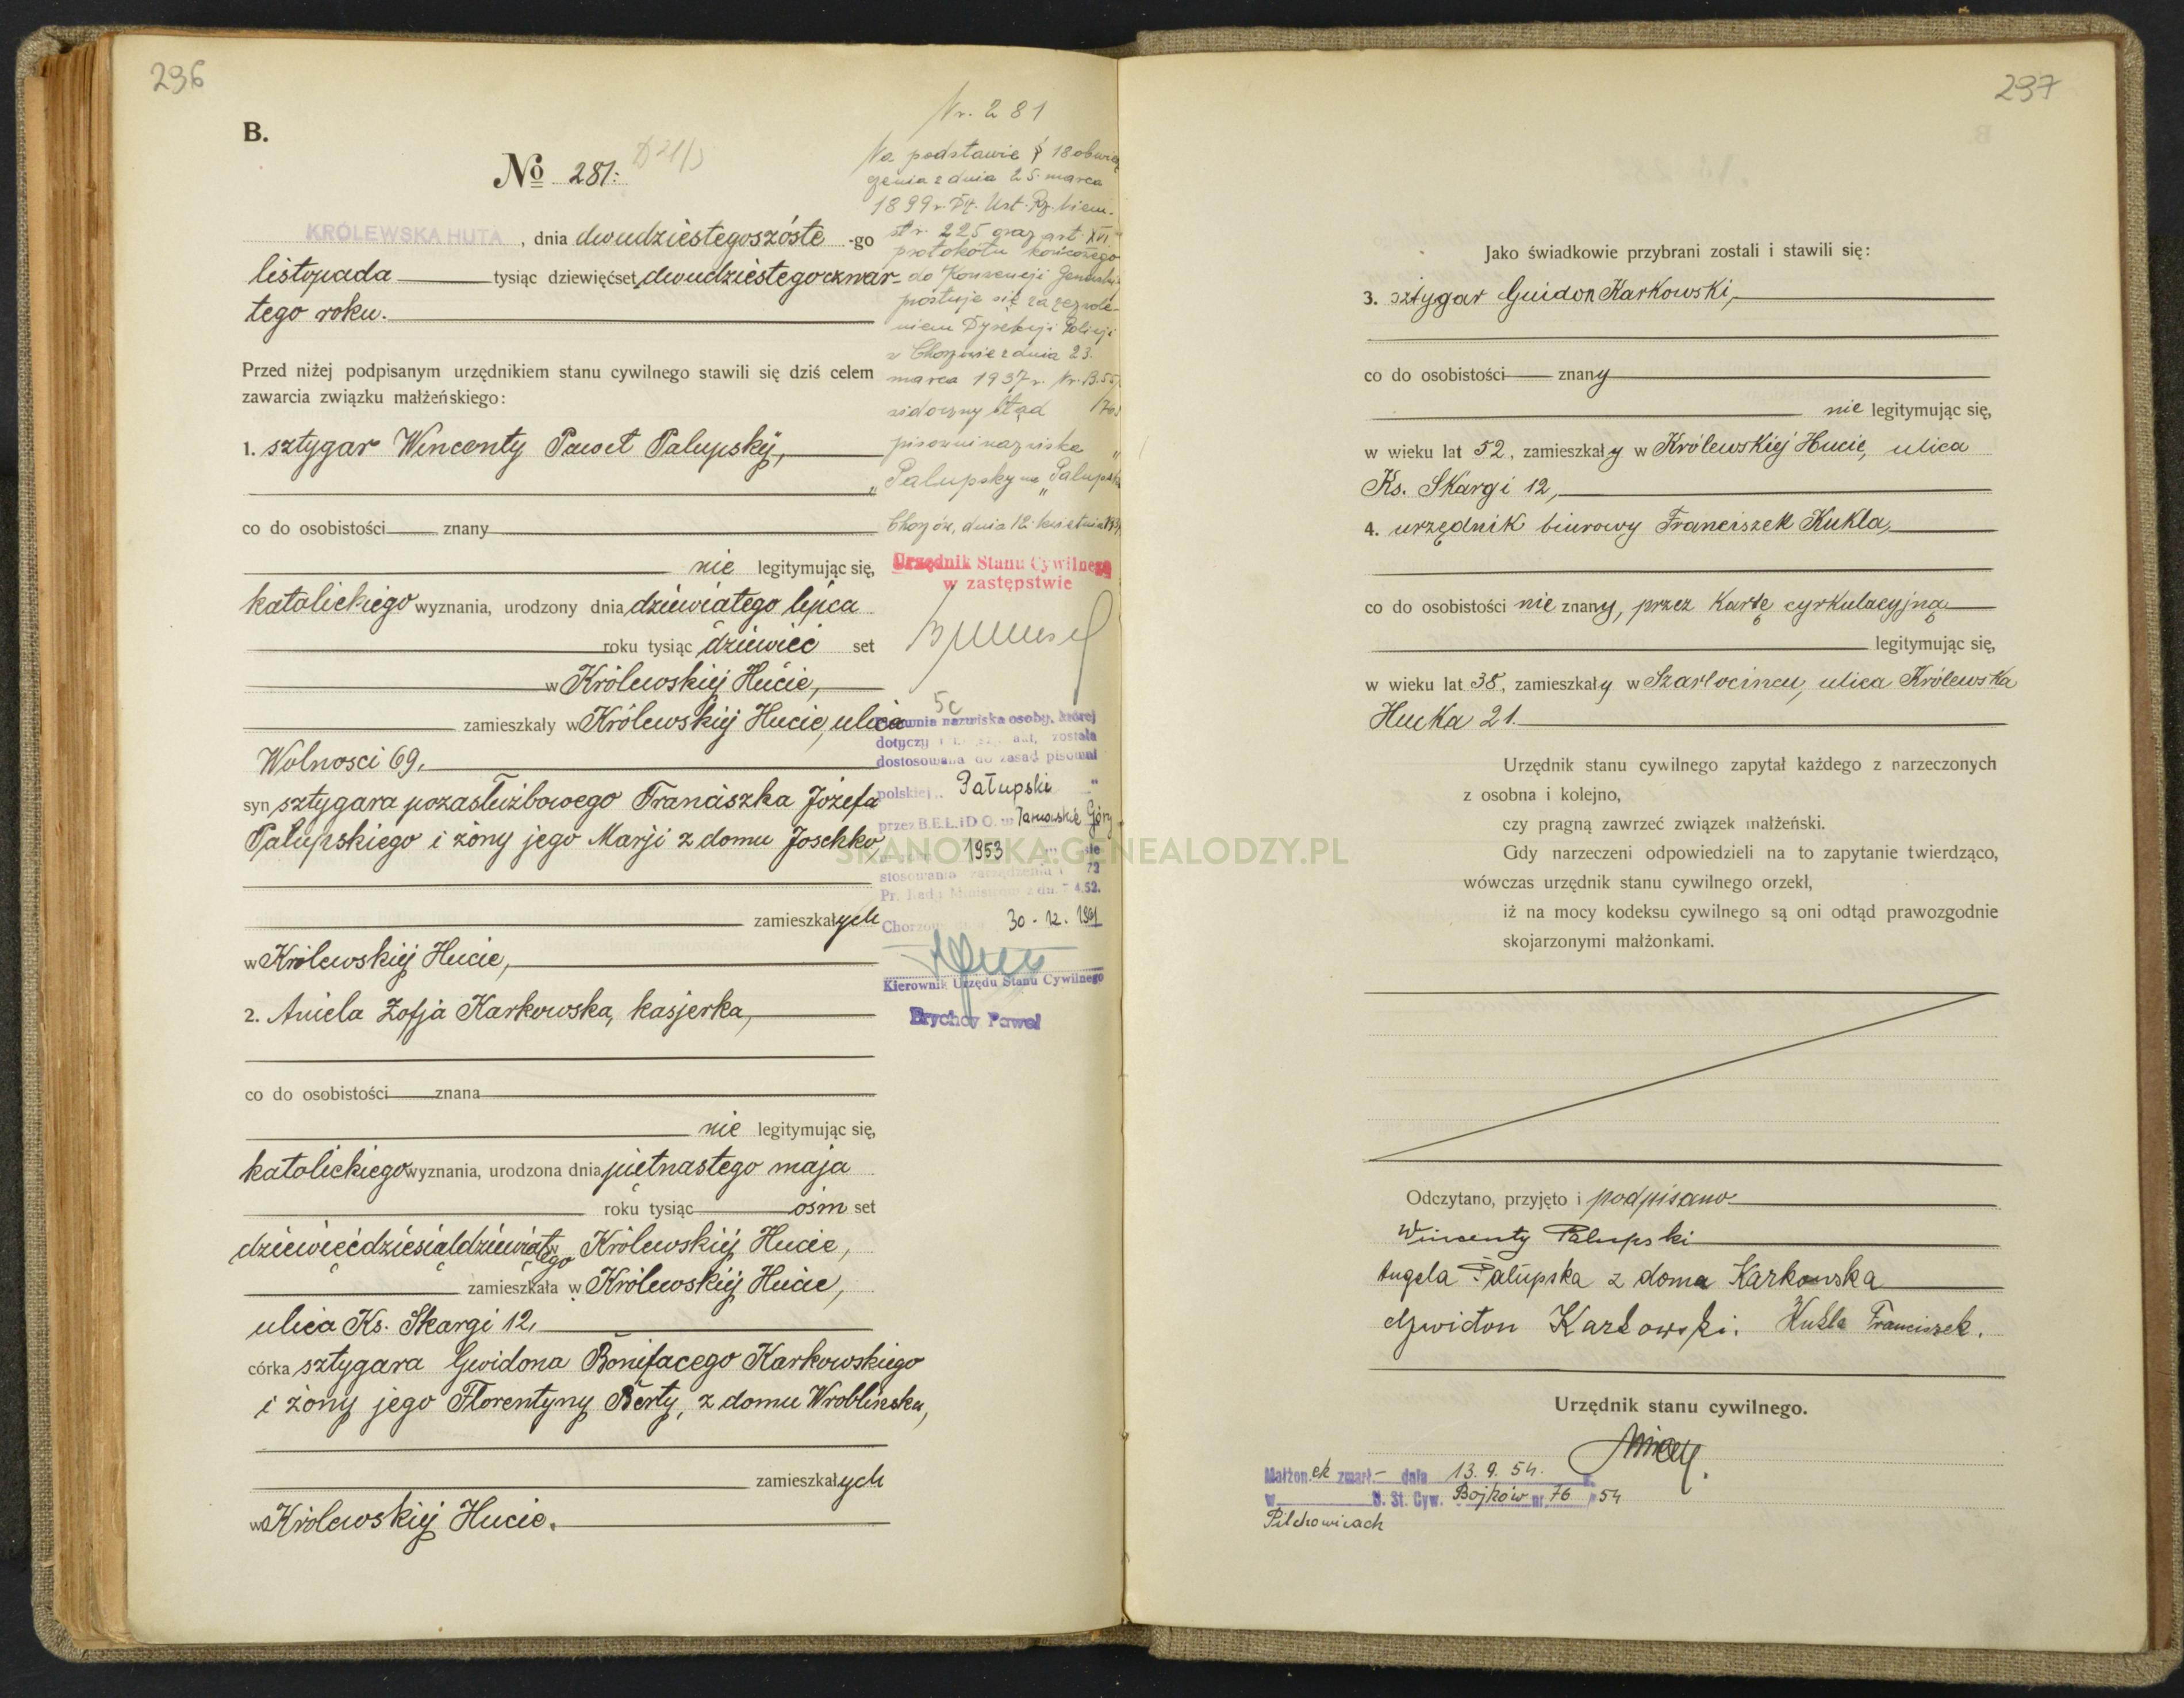 296
B.
No 281.
KRÓLEWSKA HUTA, dnia dwudziestegoszóste -go
listopada tysiąc dziewięćset dwudziestegoczwar-
tego roku.
Przed niżej podpisanym urzędnikiem stanu cywilnego stawili się dziś celem
zawarcia związku małżeńskiego:
1. sztygar Wincenty Paweł Palupsky,
co do osobistości znany
nie legitymując się,
katolickiego wyznania, urodzony dnia dziewiątego lipca
roku tysiąc dziewięć set
w Królewskiej Hucie,
zamieszkały w Królewskiej Hucie, ulica
Wolnosci 69,
syn sztygara pozasłużbowego Franciszka Józefa
Palupskiego i żony jego Marji z domu Joschko,
zamieszkałych
w Królewskiej Hucie,
2. Aniela Zofja Karkowska, kasjerka,
co do osobistości znana
nie legitymując się,
katolickiego wyznania, urodzona dnia piętnastego maja
roku tysiąc ośm set
dziewięćdziesiątdziewiątego w Królewskiej Hucie,
zamieszkała w Królewskiej Hucie,
ulica Ks. Skargi 12,
córka sztygara Gwidona Bonifacego Karkowskiego
i żony jego Florentyny Berty, z domu Wroblinska,
zamieszkałych
w Królewskiej Hucie.
Nr. 281
Na podstawie § 18 obwie
czenia z dnia 25. marca
1899 r. Dz. Ust. Rz. Niem.
str. 225 oraz art. XVI
protokołu końcowego
do Konwencji Genewskiej
prostuje się za zezwole-
niem Dyrekcji Policji
w Chorzowie z dnia 23.
marca 1937 r. Nr. B. 55/
widoczny błąd
pisowni nazwiska
„Palupsky" na „Palupski
Chorzów, dnia 12. kwietnia
Urzędnik Stanu Cywilnego
w zastępstwie
5c
Pisownia nazwiska osoby, której
dotyczy akt, została
dostosowana do zasad pisowni
polskiej „Pałupski"
przez B.E.L. i D.O. w Tarnowskie Góry
1953
stosowania zarządzenia 72
Pr. Rady Ministrów z dn. 7.4.52.
Chorzów 30-12. 1961
Kierownik Urzędu Stanu Cywilnego
Brychcy Paweł
SKANOTEKA.GENEALODZY.PL
297
Jako świadkowie przybrani zostali i stawili się:
3. sztygar Guidon Karkowski,
co do osobistości znany
nie legitymując się,
w wieku lat 52, zamieszkały w Królewskiej Hucie, ulica
Ks. Skargi 12,
4. urzędnik biurowy Franciszek Kukla,
co do osobistości nie znany, przez Kartę cyrkulacyjną
legitymując się,
w wieku lat 38, zamieszkały w Szarłocincu, ulica Królewska
Hucka 21.
Urzędnik stanu cywilnego zapytał każdego z narzeczonych
z osobna i kolejno,
czy pragną zawrzeć związek małżeński.
Gdy narzeczeni odpowiedzieli na to zapytanie twierdząco,
wówczas urzędnik stanu cywilnego orzekł,
iż na mocy kodeksu cywilnego są oni odtąd prawozgodnie
skojarzonymi małżonkami.
Odczytano, przyjęto i podpisano
Wincenty Palupski
Angela Palupska z doma Karkowska
Gwidon Karkowski. Kukla Franciszek.
Urzędnik stanu cywilnego.
Małżonek zmarł dnia 13.9.54. r.
w U. St. Cyw. Bojków nr. 76 /54
Pilchowicach